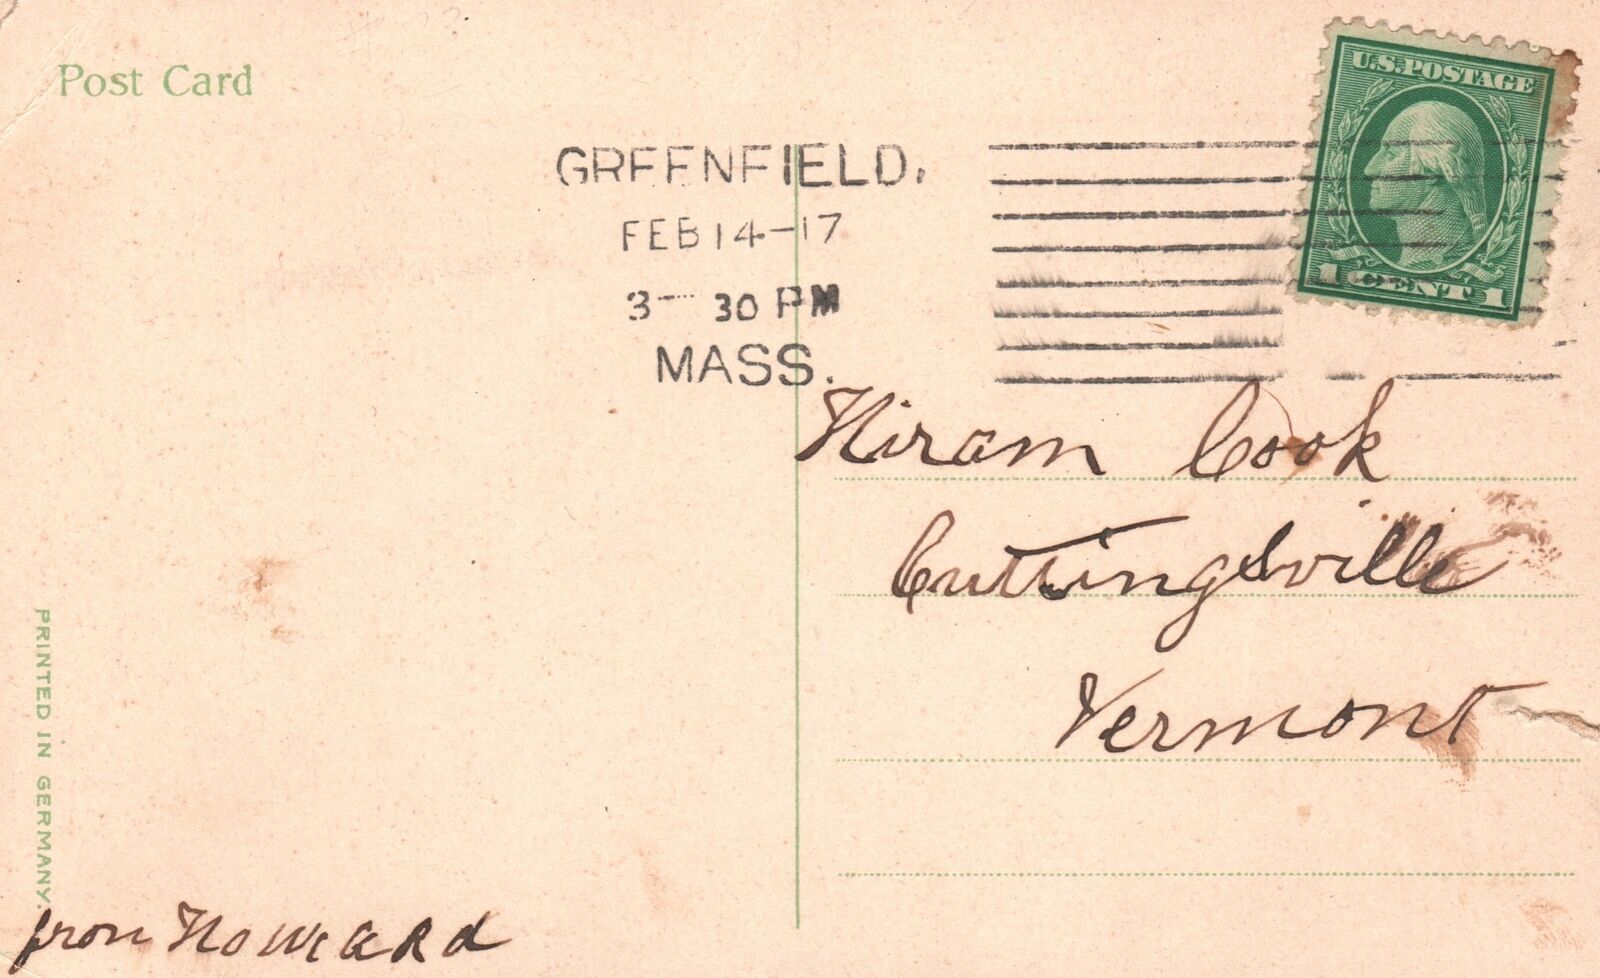 Post Card
U.S. POSTAGE
1 CENT 1
GREENFIELD,
FEB 14-17
3- 30 PM
MASS.
Hiram Cook
Cuttingsville
Vermont
PRINTED IN GERMANY.
from Howard